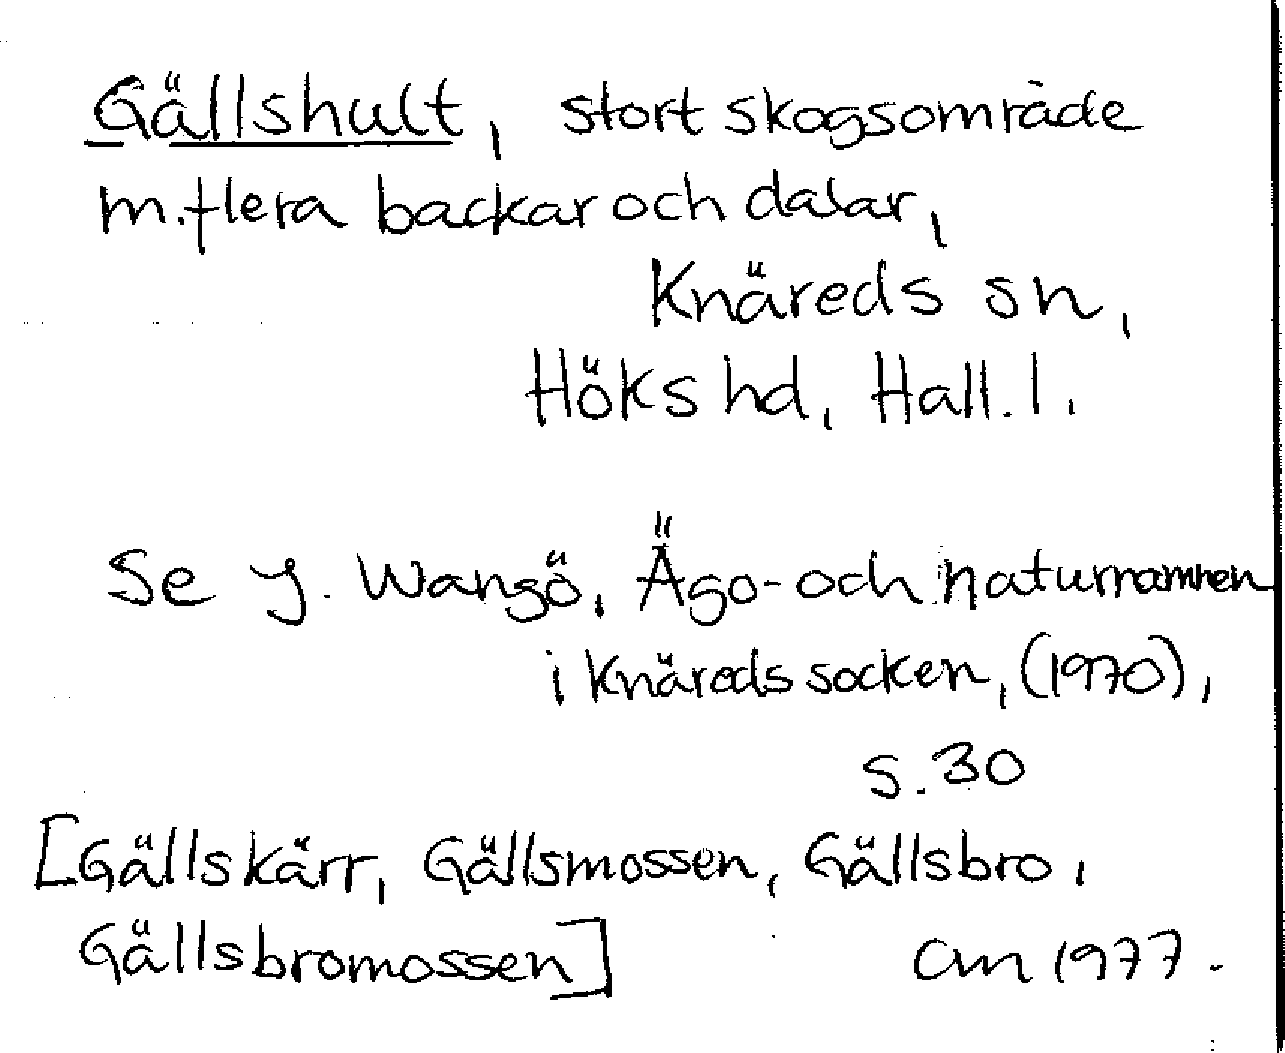 Gällshult, stort skogsområde
m. flera backar och dalar,
Knäreds sn,
Höks hd, Hall. l.
Se J. Wangö, Ägo- och naturnamnen
i Knäreds socken, (1970),
s. 30
[Gällskärr, Gällsmossen, Gällsbro,
Gällsbromossen]
Cm 1977.